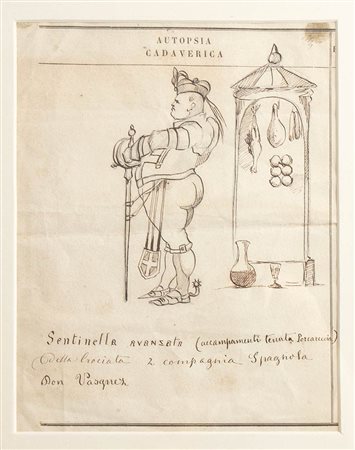 AUTOPSIA
CADAVERICA
Sentinella avanzata (accampamenti tenuta Porcareccia)
(della Crociata 2 compagnia Spagnola
Don Vasquez